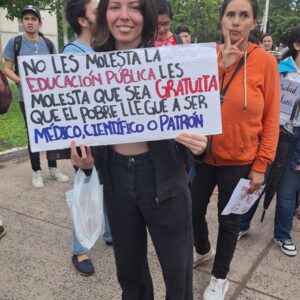 NO LES MOLESTA LA
EDUCACIÓN PÚBLICA LES
MOLESTA QUE SEA GRATUITA
QUE EL POBRE LLEGUE A SER
MÉDICO, CIENTÍFICO O PATRÓN